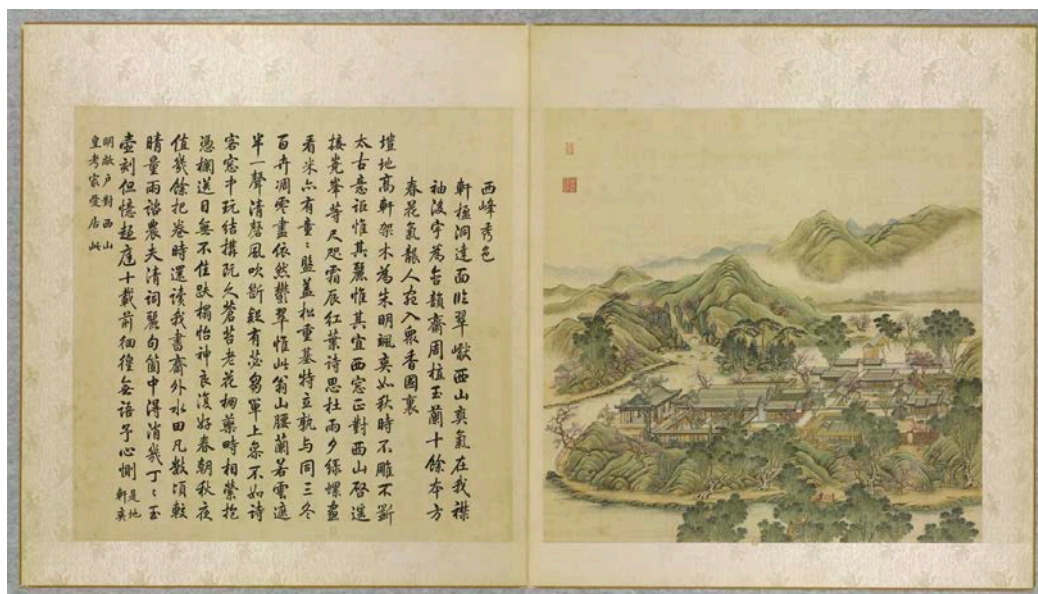 西峰秀色
軒楹洞達面臨翠巘西山爽氣在我襟
袖後宇為含韻齋周植玉蘭十餘本方
春花氣襲人宛入眾香國裏
塏地高軒架木為朱明颯爽如秋時不雕不斵
太古意詎惟其麗惟其宜西窓正對西山啓遥
接嶤峯等尺咫霜辰紅葉詩思杜雨夕綠螺畫
看米亦有童〻盤蓋松重基特立孰与同三冬
百卉凋零盡依然鬱翠惟此翁山腰蘭若雲遮
半一聲清磬風吹斷疑有苾芻單上參不如詩
客窓中玩結搆既久蒼苔老花欄藥時相縈抱
憑欄送目無不佳趺榻怡神良復好春朝秋夜
值幾餘把卷時還讀我書齋外水田凡數頃較
晴量雨諮農夫清詞麗句箇中得消幾丁〻玉
壺刻但憶趨庭十載前徊徨無語予心惻是地軒爽
明敞戶對西山
皇考最愛居此